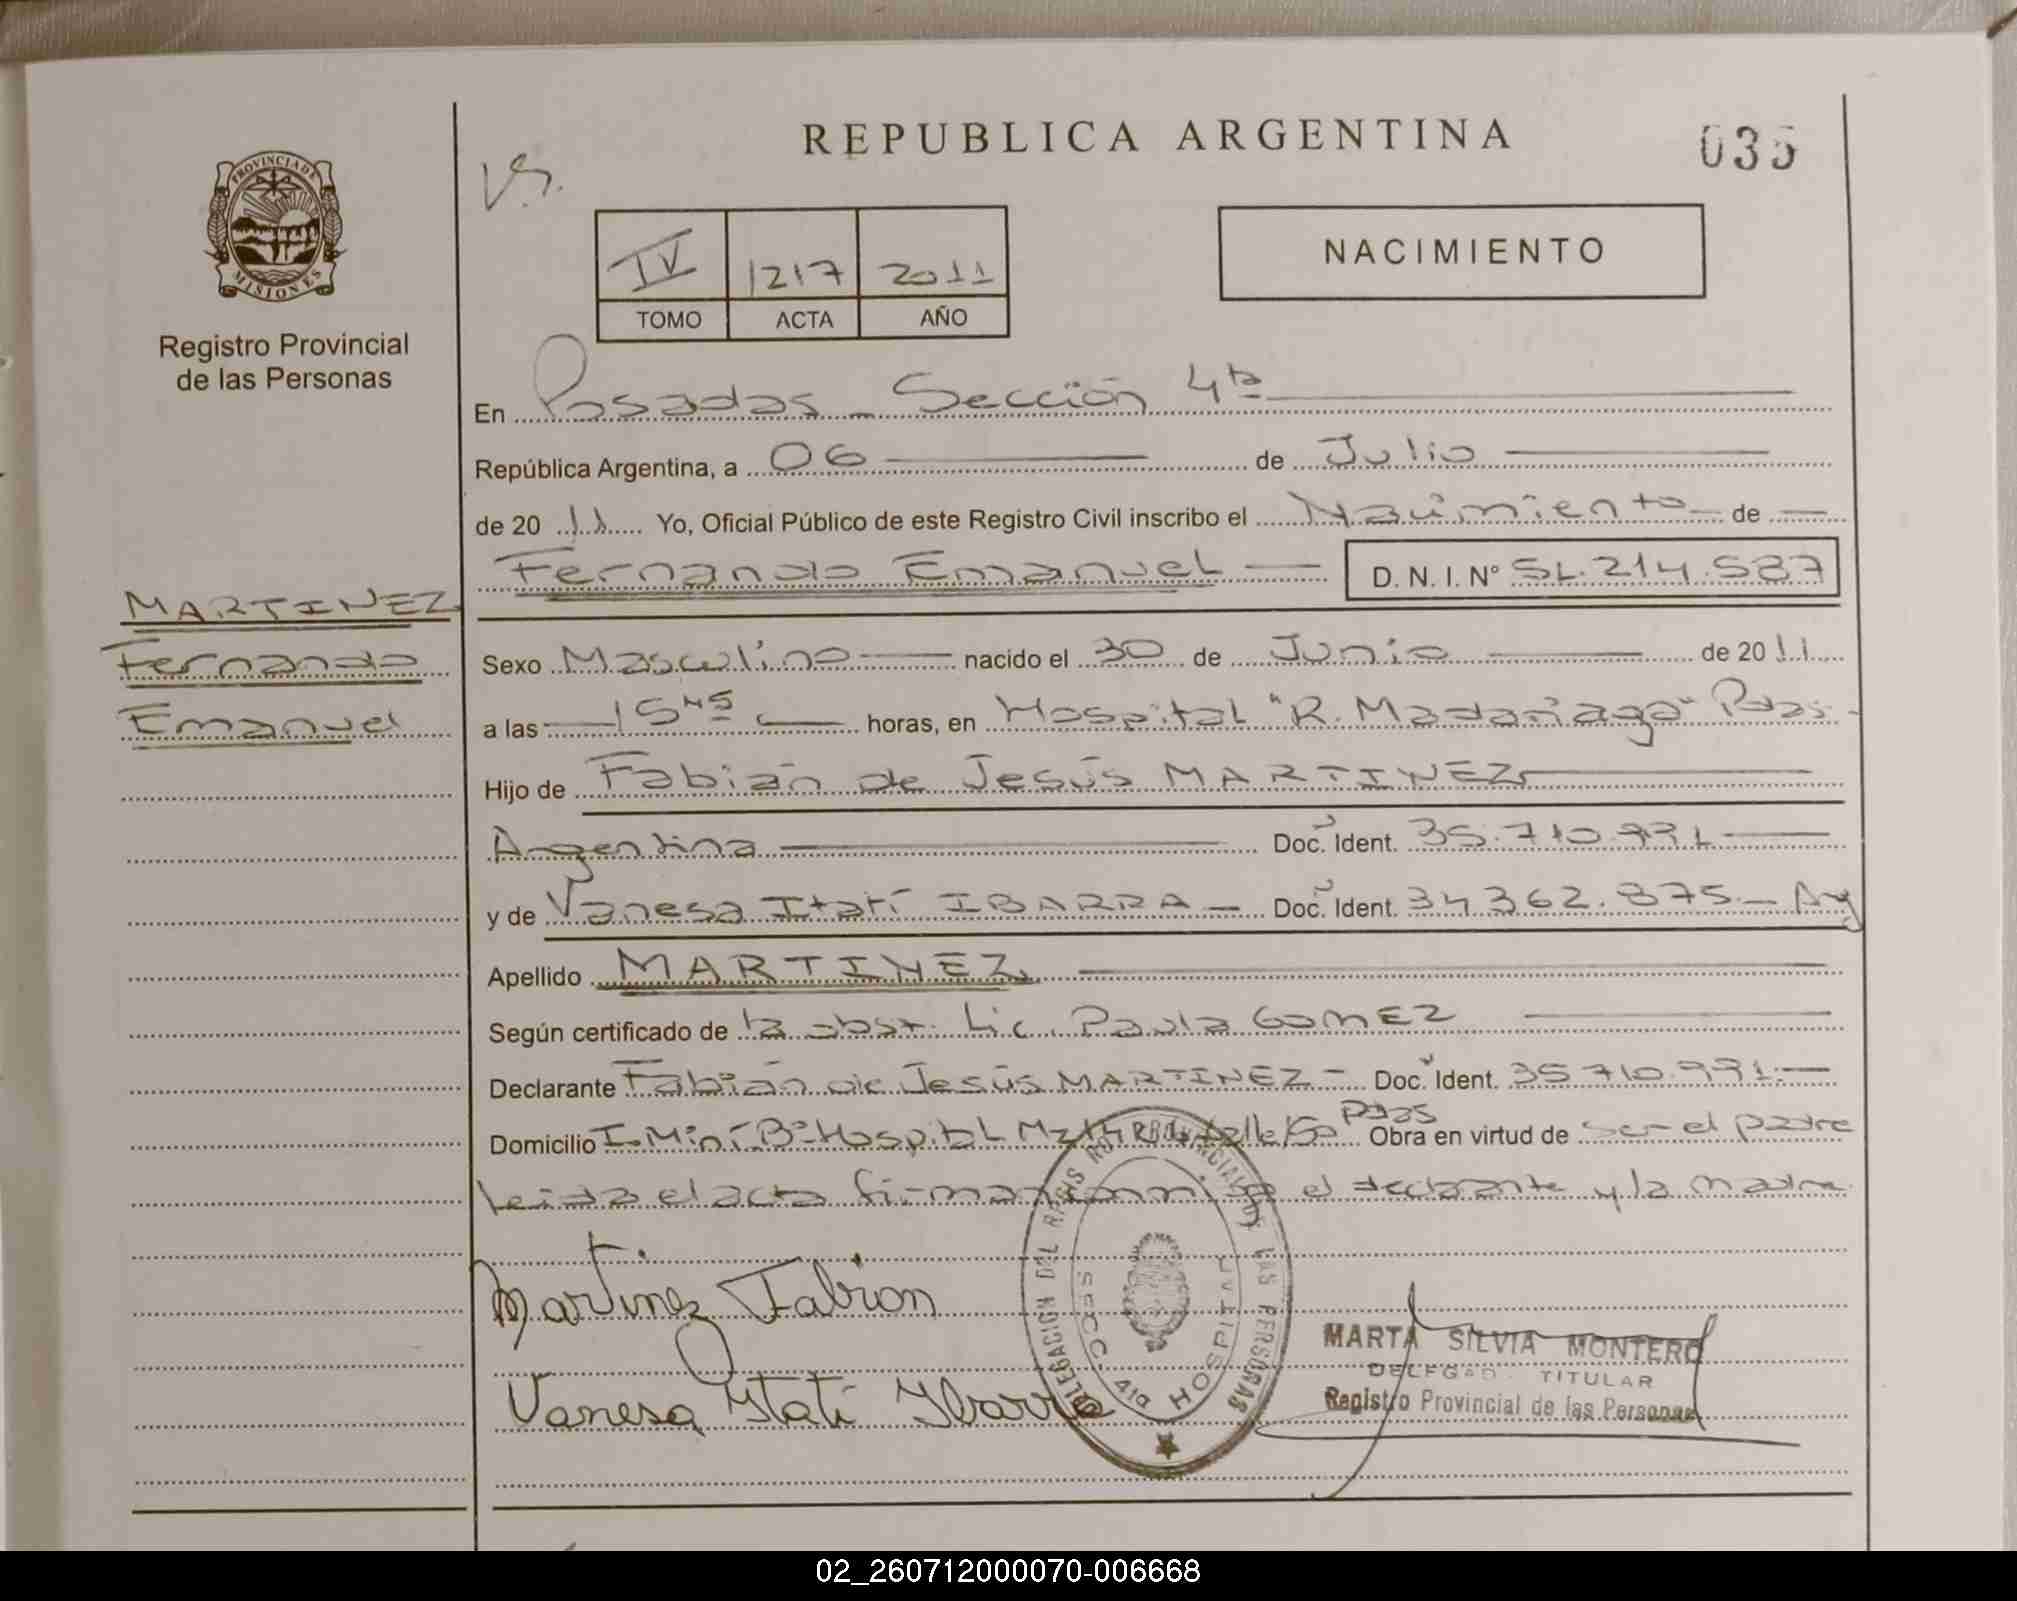 REPUBLICA ARGENTINA
035
PROVINCIA DE
MISIONES
Registro Provincial
de las Personas
IV 1217 2011
TOMO ACTA AÑO
NACIMIENTO
En Posadas - Sección 4ta
República Argentina, a 06 de Julio
de 2011 Yo, Oficial Público de este Registro Civil inscribo el Nacimiento de
Fernando Emanuel D. N. I. N° 51.214.587
MARTINEZ
Fernando
Emanuel
Sexo Masculino nacido el 30 de Junio de 2011
a las 15 45 horas, en Hospital "R. Madariaga" Pdas.
Hijo de Fabián de Jesús MARTINEZ
Argentina Doc. Ident. 35.710.991
y de Vanesa Itatí IBARRA Doc. Ident. 34.362.875.- Arg
Apellido MARTINEZ
Según certificado de la obst. Lic. Paula GOMEZ
Declarante Fabián de Jesús MARTINEZ - Doc. Ident. 35.710.991.-
Domicilio I. Miní Bº Hospital Pdas Obra en virtud de ser el padre
Leída el acta firman conmigo el declarante y la madre.
Martinez Fabian
Vanesa Itati Ibarra
DELEGACION DEL REGIS RO PROVINCIAL DE LAS PERSONAS
SECC. 4ta HOSPITAL
MARTA SILVIA MONTERO
DELEGAD TITULAR
Registro Provincial de las Personas
02_260712000070-006668